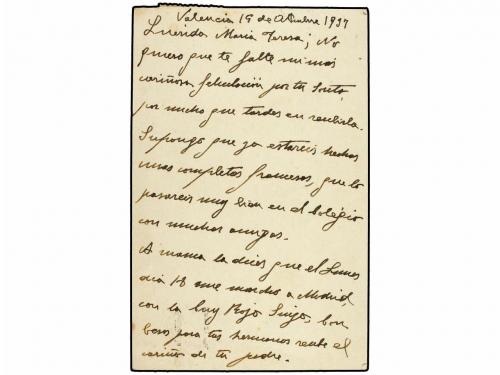 Valencia 15 de Octubre 1937
Querida Maria Teresa; No
quiero que te falte mi mas
cariñosa felicitación por tu Santo,
por mucho que tardes en recibirla.
Supongo que ya estareis hechas
unas completas francesas, que lo
pasareis muy bien en el Colegio
con muchas amigas.
A mama la dices que el Lunes
dia 18 me marcho a Madrid,
con la Cruz Roja Suiza, con
besos para tus hermanos recibe el
cariño de tu padre.